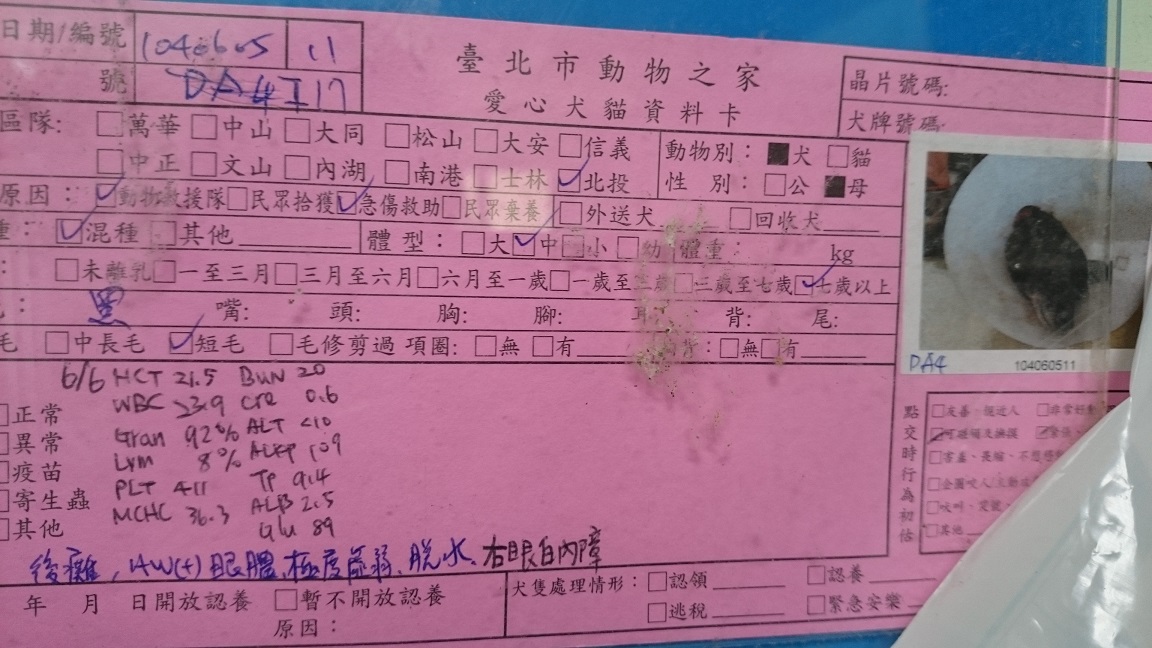 日期/編號 1040605 11
號 DA4I17
臺北市動物之家
愛心犬貓資料卡
晶片號碼:
犬牌號碼:
區隊: □萬華 □中山 □大同 □松山 □大安 □信義
□中正 □文山 □內湖 □南港 □士林 ☑北投
動物別: ■犬 □貓
性別: □公 ■母
原因: ☑動物救援隊 □民眾拾獲 ☑急傷救助 □民眾棄養 □外送犬 □回收犬
☑混種 □其他 體型: □大 ☑中 □小 □幼 體重: kg
□未離乳 □一至三月 □三月至六月 □六月至一歲 □一歲至三歲 □三歲至七歲 ☑七歲以上
黑 嘴: 頭: 胸: 腳: 背: 尾:
毛 □中長毛 ☑短毛 □毛修剪過 項圈: □無 □有 □無 □有
DA4 104060511
6/6 HCT 21.5 BUN 20
WBC 23.9 cre 0.6
Gran 92% ALT <10
Lym 8% ALKP 109
PLT 411 TP 9.4
MCHC 36.3 ALB 2.5
Glu 89
□正常
□異常
□疫苗
□寄生蟲
□其他
點交時行為初估
□友善、親近人
☑可碰觸及撫摸
□害羞、畏縮、
□企圖咬人/主動
□吠叫、
□其他
後癱, HW(+) 極度虛弱、脫水、右眼白內障
年 月 日開放認養 □暫不開放認養
原因:
犬隻處理情形: □認領 □認養
□逃稅 □緊急安樂